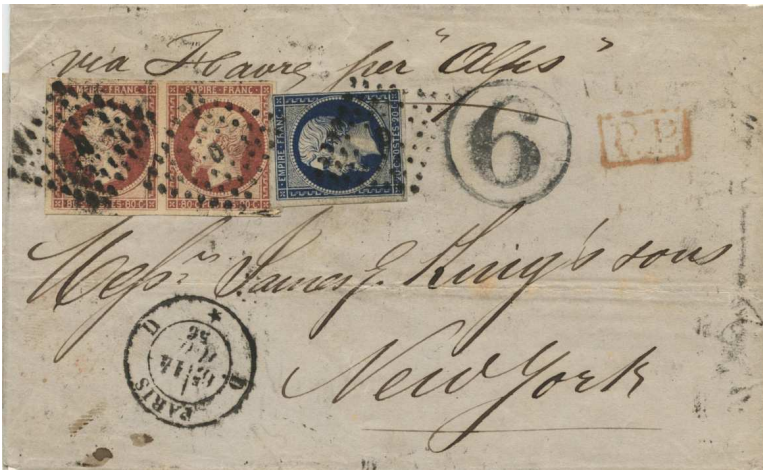 via Havre per "Alps"
EMPIRE FRANC
EMPIRE FRANC
EMPIRE FRANC
80 C
6
P.P.
Messrs James G. King's sons
New York
PARIS
D D
14
56